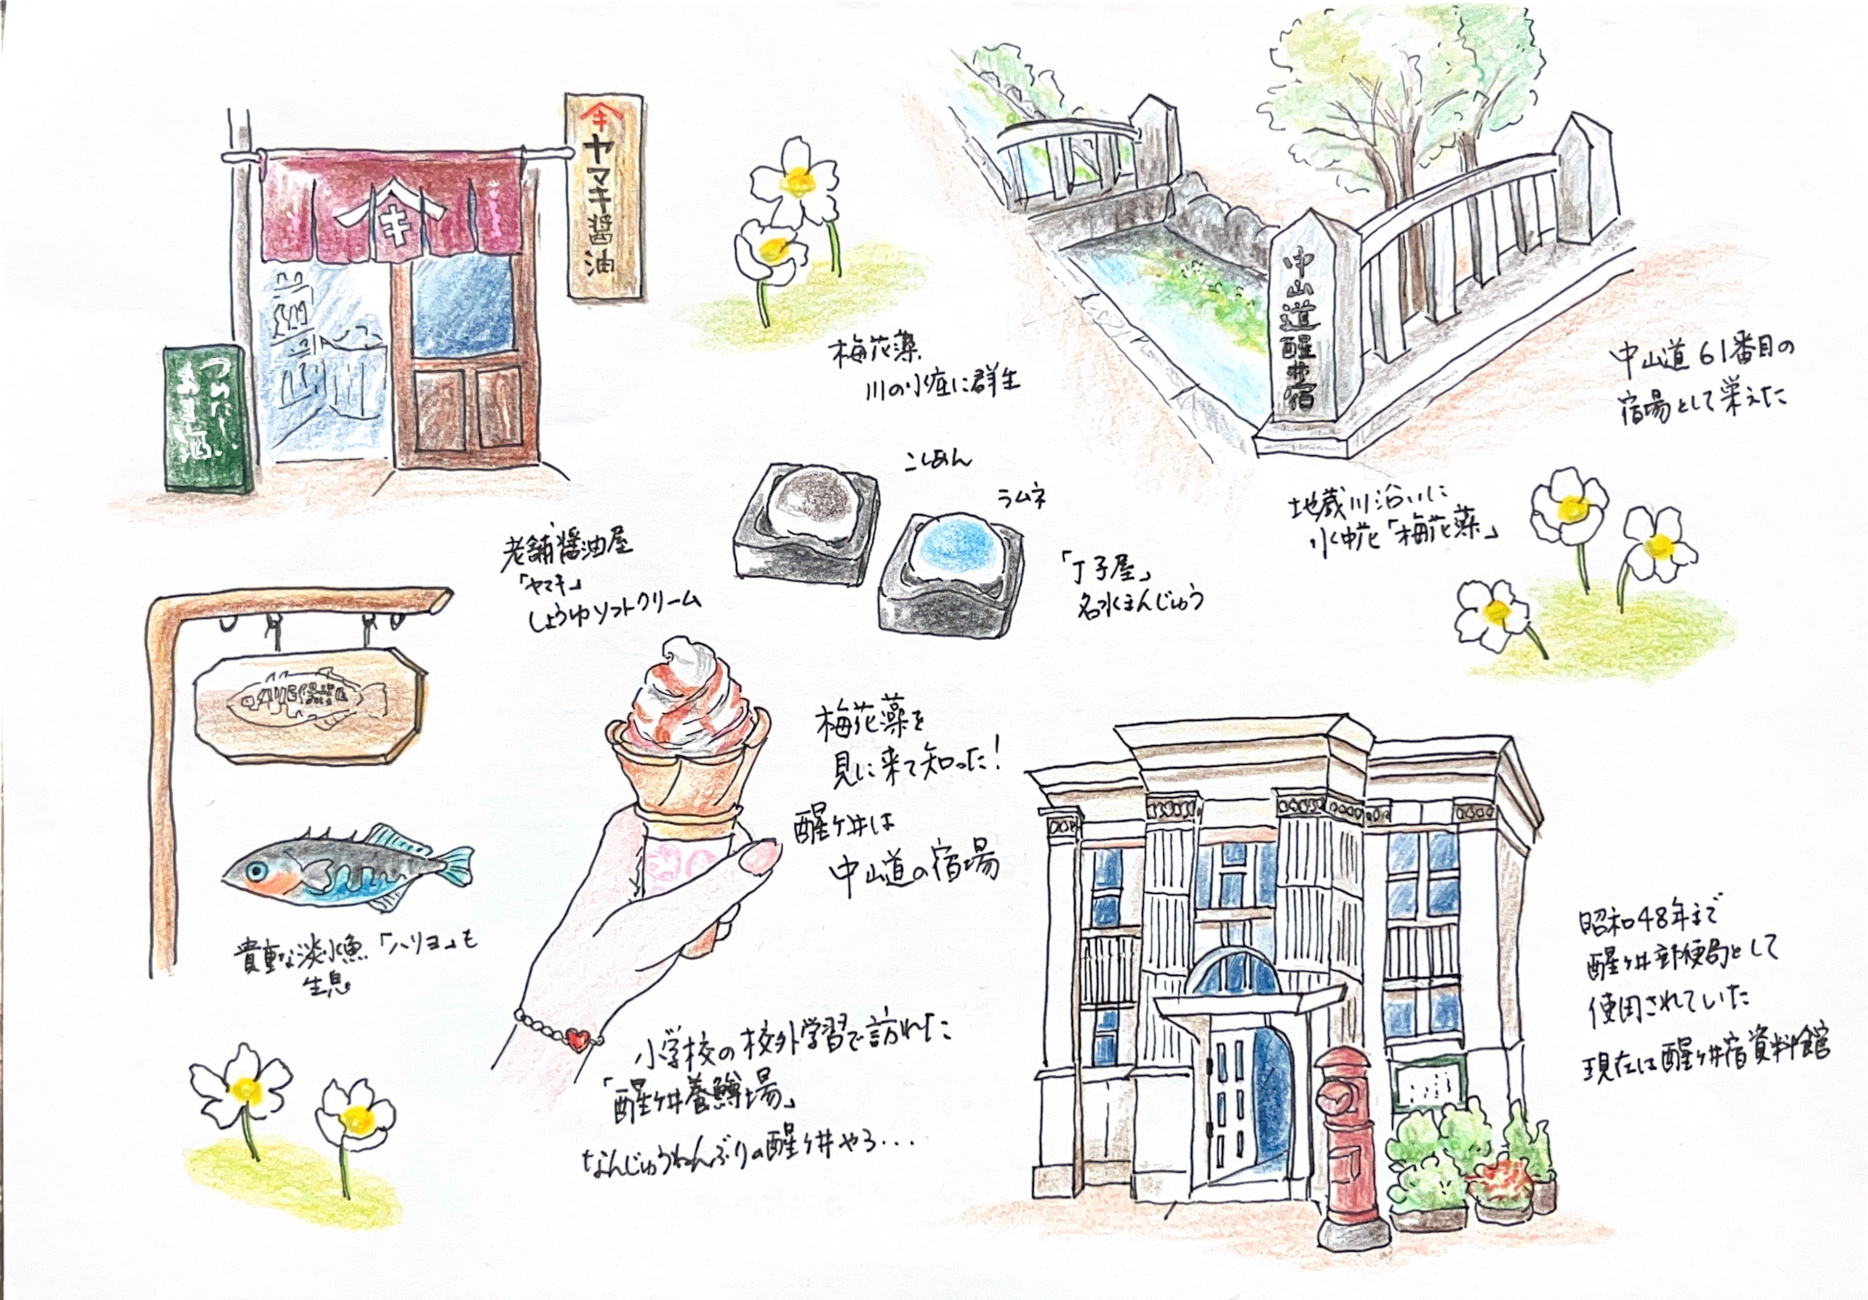 キ
ヤマキ醤油
キ
つめたーい
梅花藻
川の小庄に群生
中山道醒井宿
中山道61番目の
宿場として栄えた
地蔵川沿いに
水中花「梅花藻」
こしあん
ラムネ
「丁子屋」
名水まんじゅう
老舗醤油屋
「ヤマキ」
しょうゆソフトクリーム
貴重な淡水魚「ハリヨ」も
生息
梅花藻を
見に来て知った!
醒ヶ井は
中山道の宿場
小学校の校外学習で訪れた
「醒ヶ井養鱒場」
なんじゅうねんぶりの醒ヶ井やろ...
昭和48年まで
醒ヶ井郵便局として
使用されていた
現在は醒ヶ井宿資料館